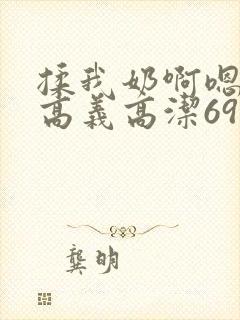 揉我奶啊嗯
高義高潔69
龔明